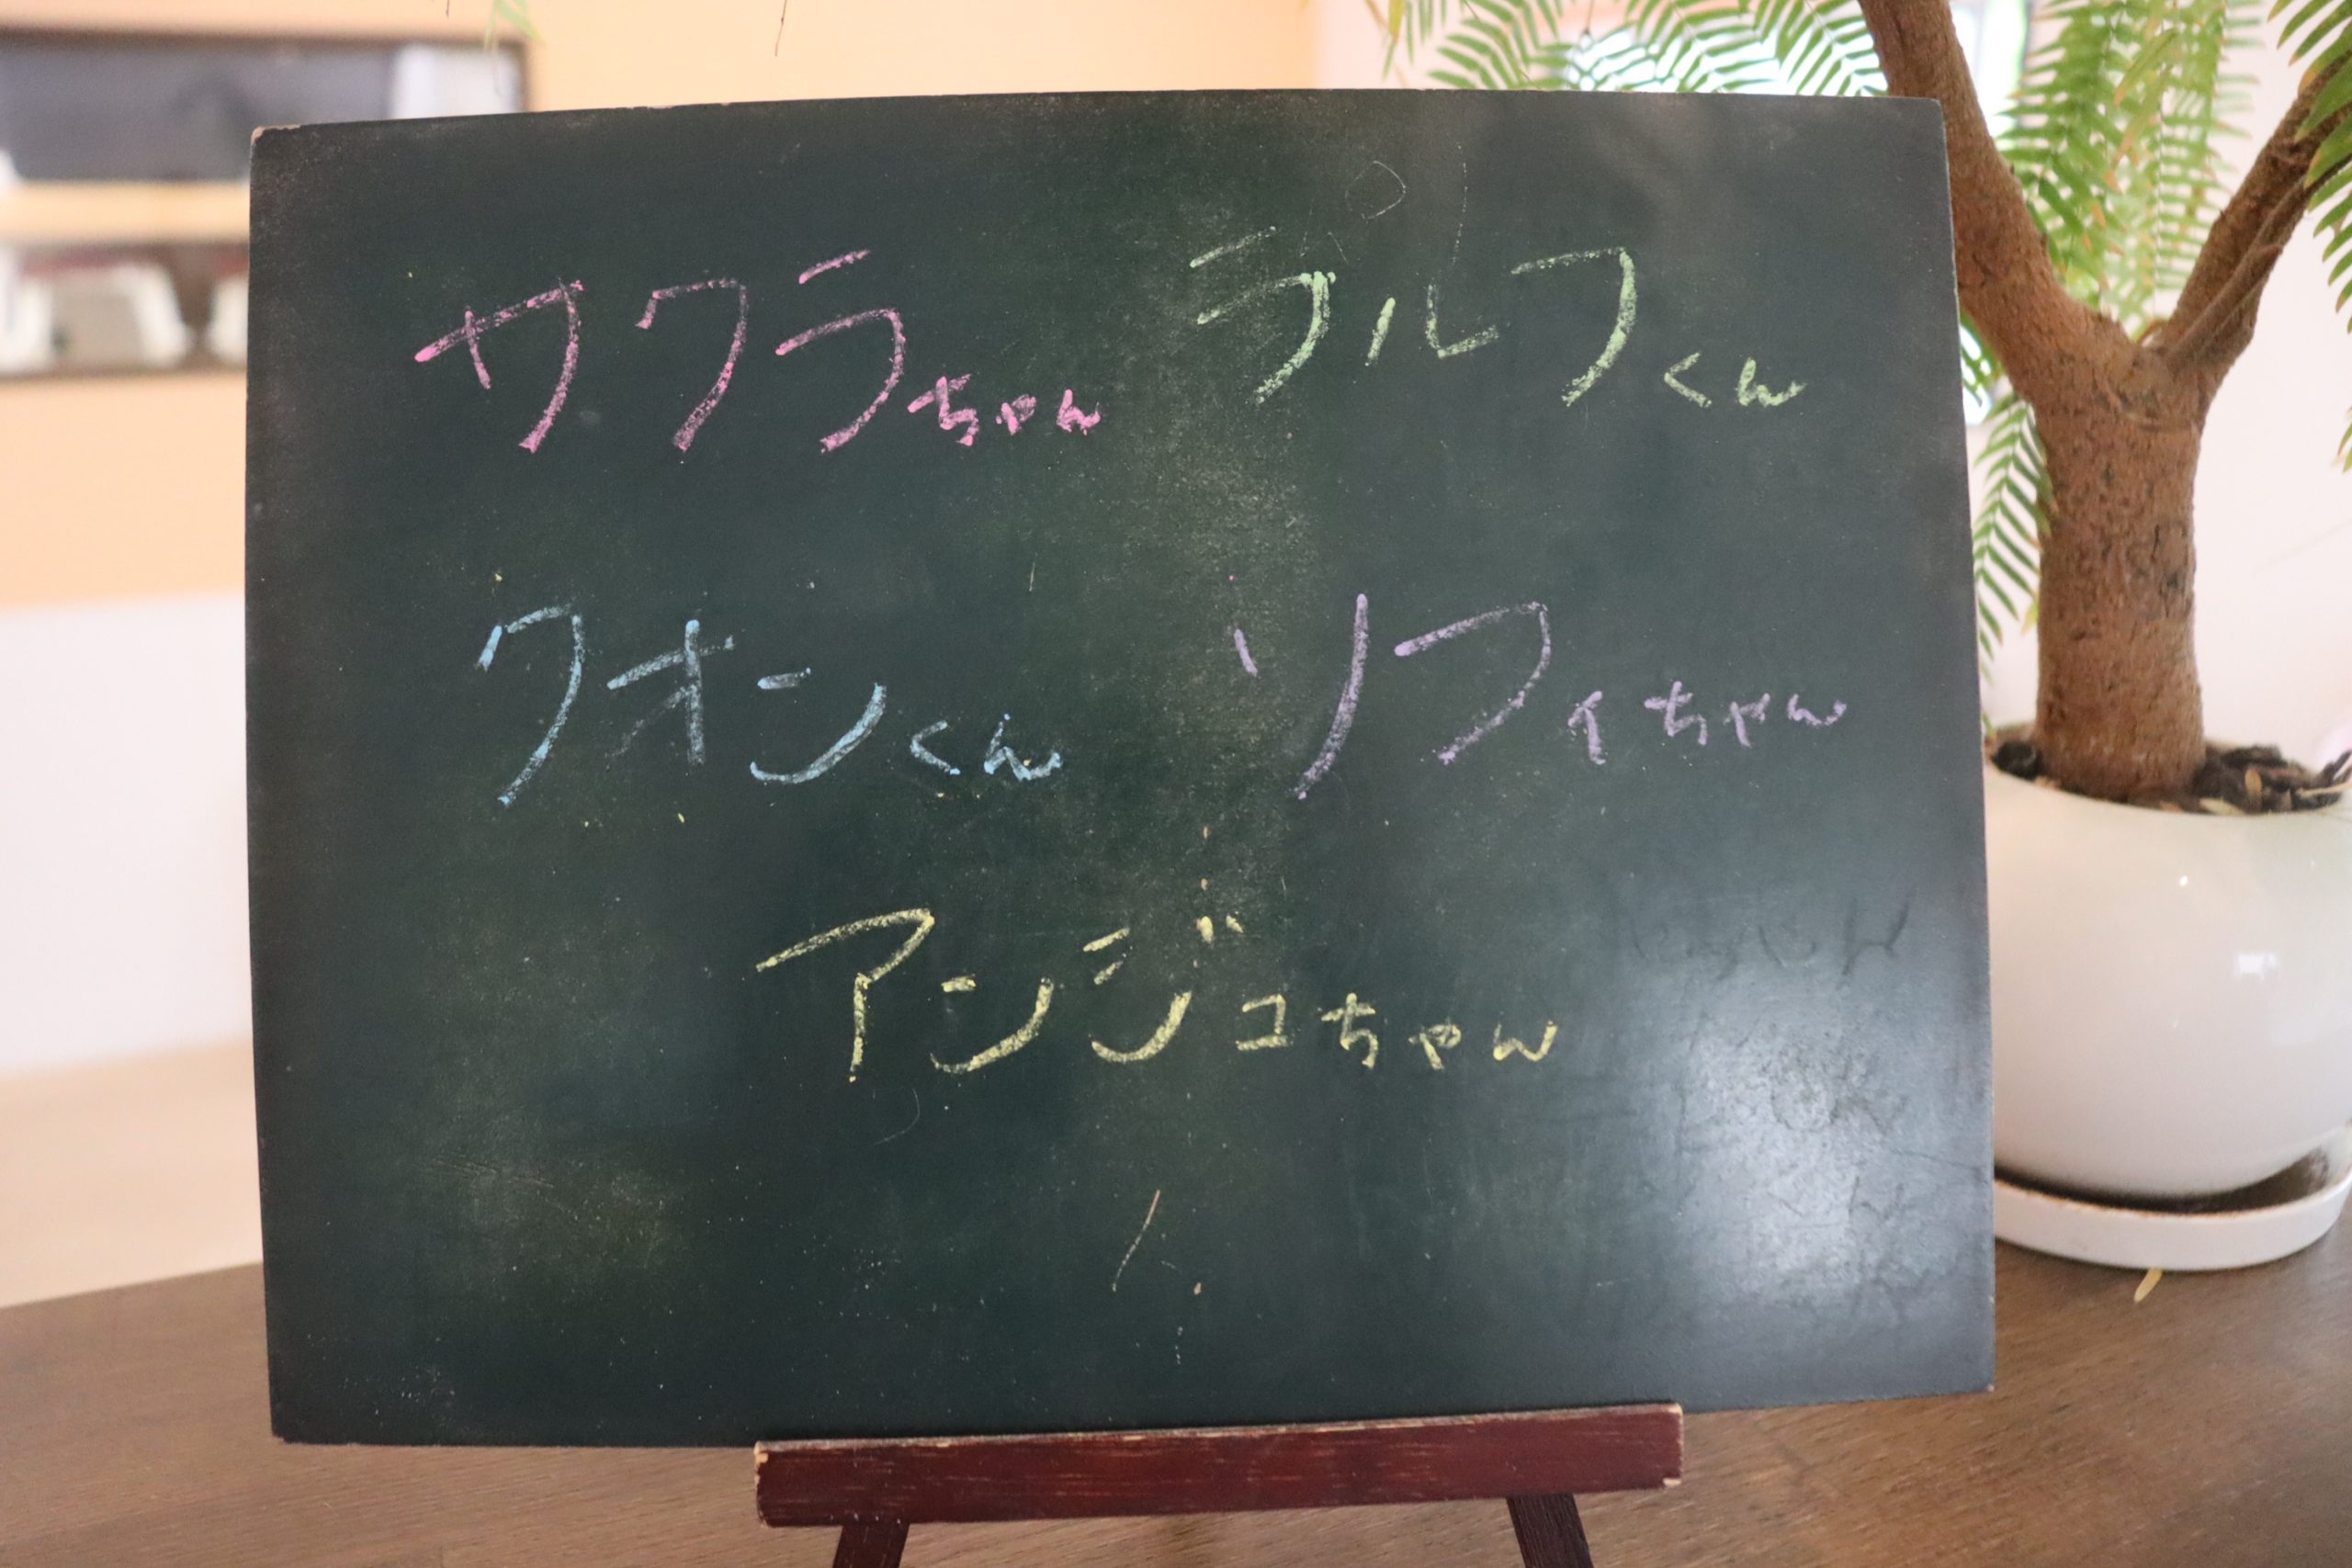 サクラちゃん ラルフくん
クオンくん ソフィちゃん
アンジュちゃん